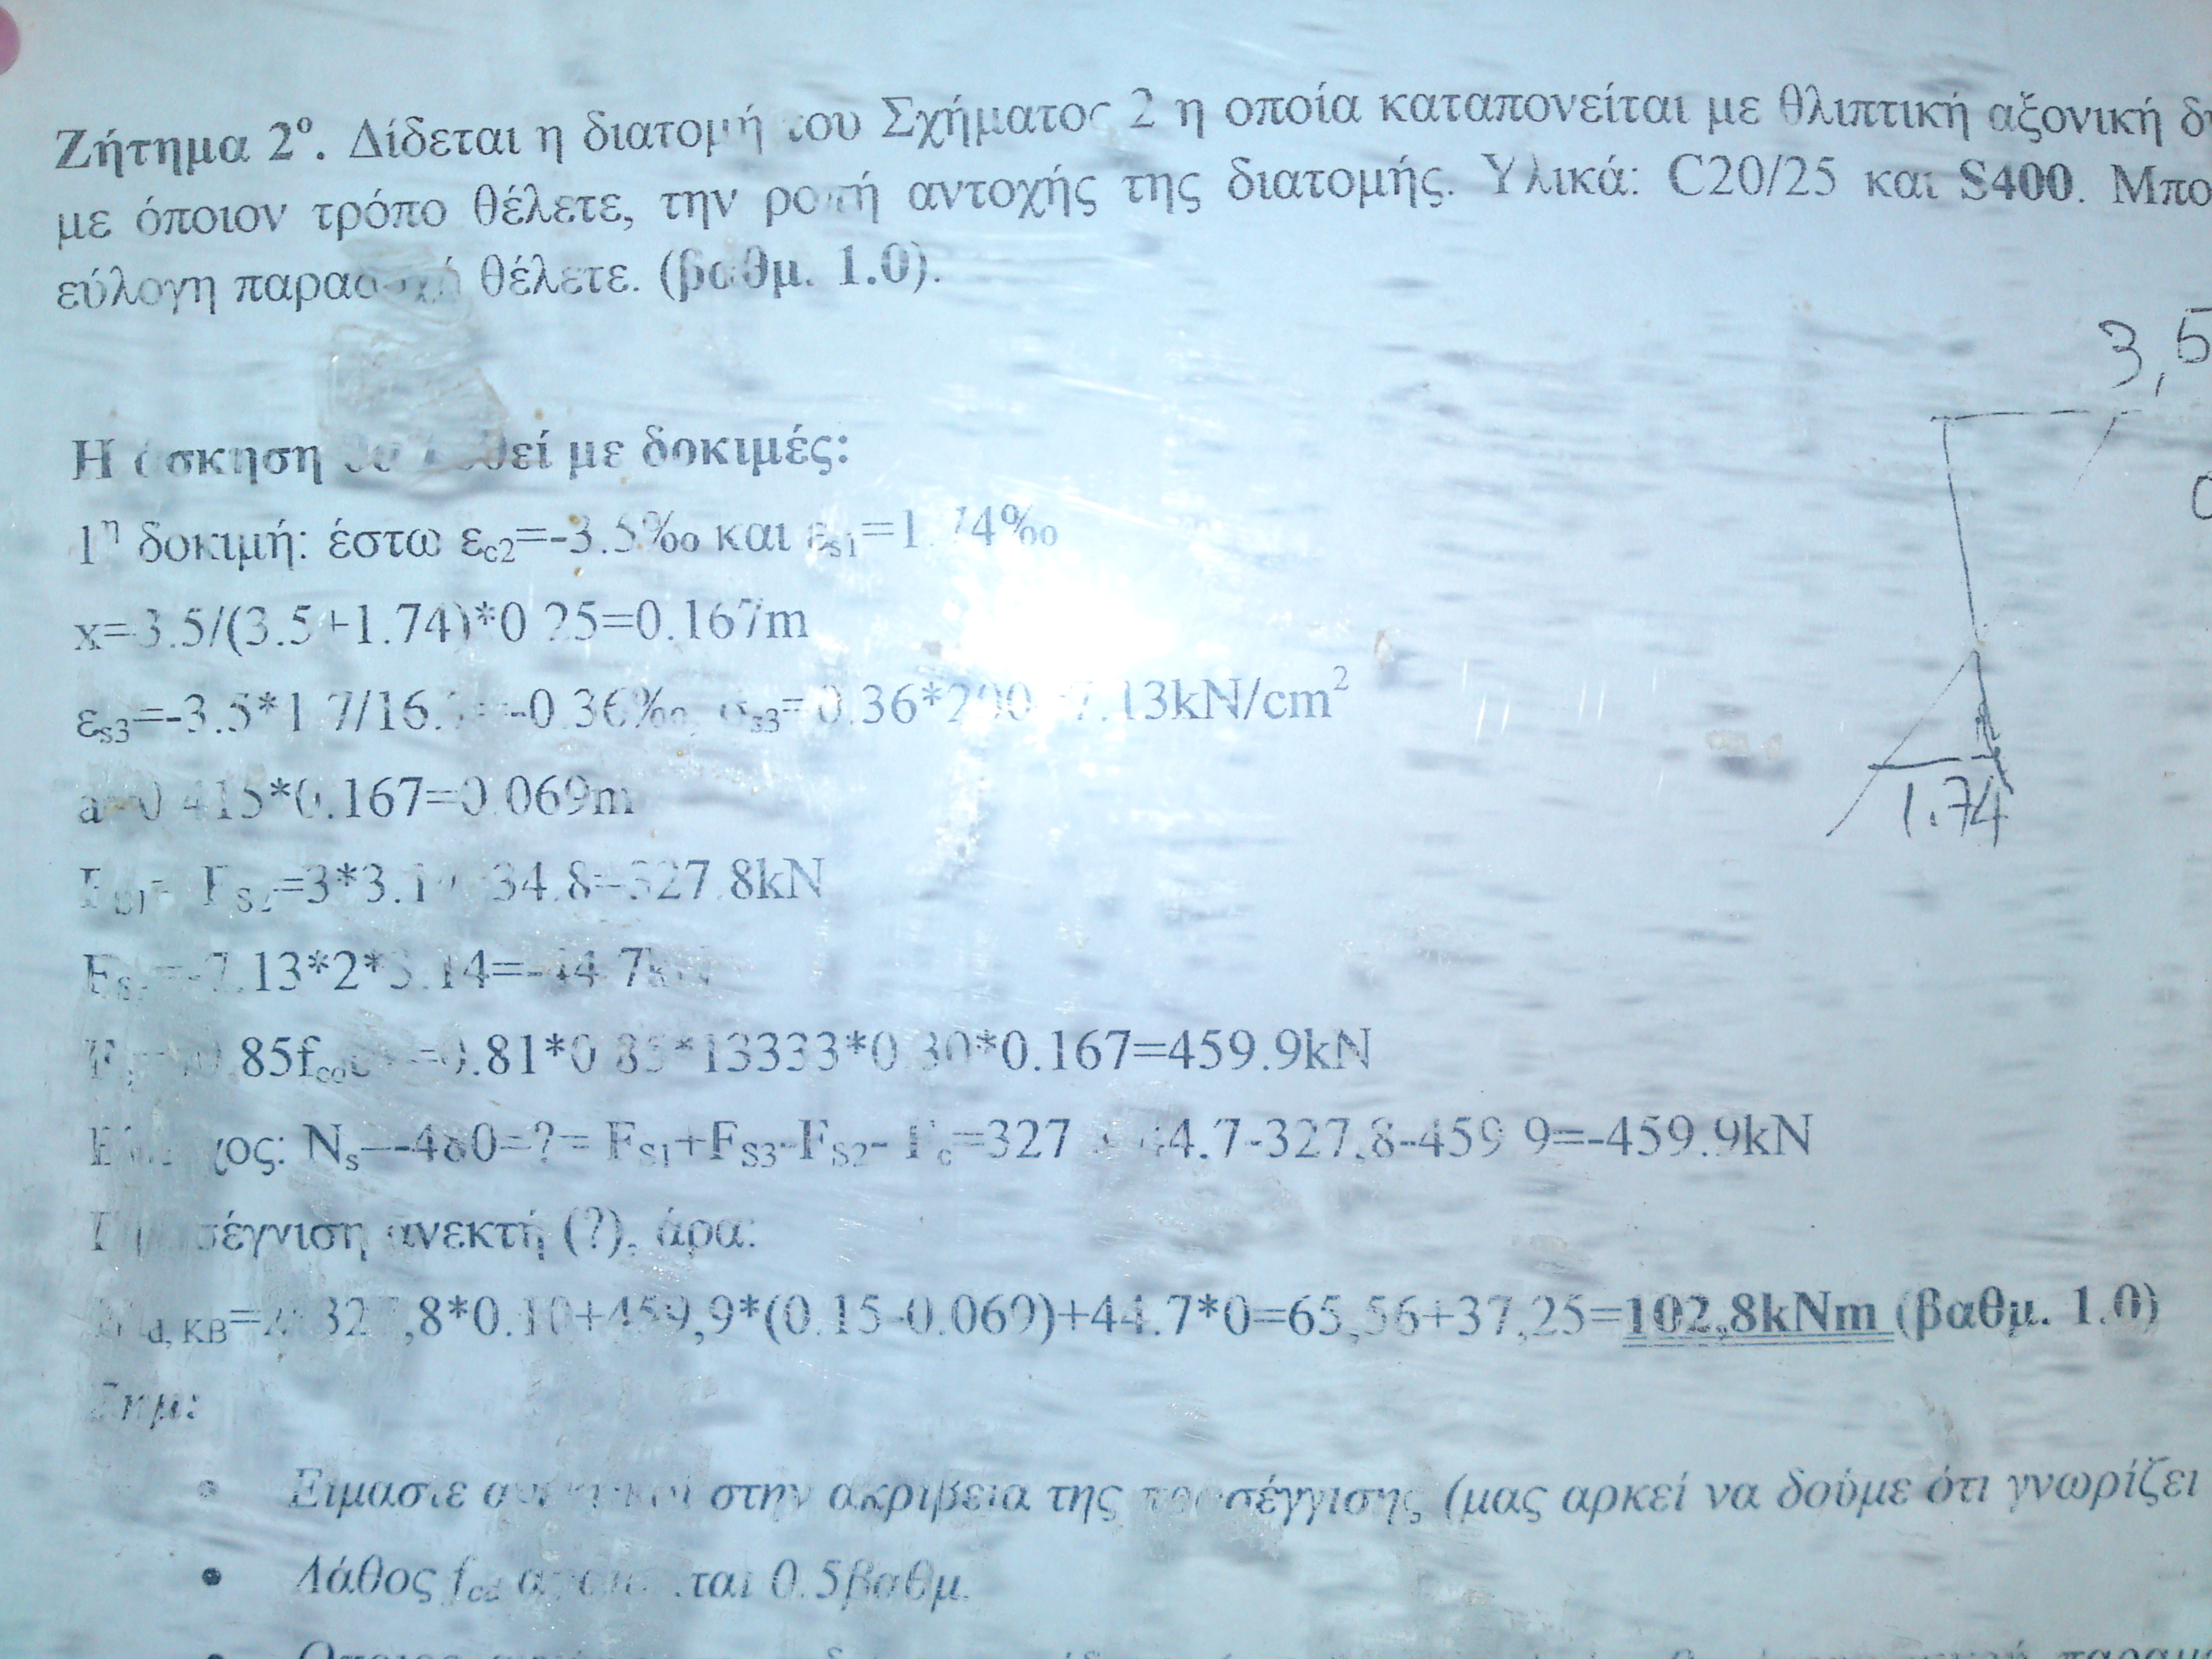 Ζήτημα 2ο. Δίδεται η διατομή του Σχήματος 2 η οποία καταπονείται με θλιπτική αξονική
με όποιον τρόπο θέλετε, την ροπή αντοχής της διατομής. Υλικά: C20/25 και S400.
εύλογη παραδοχή θέλετε. (βαθμ. 1.0).
3,5
Η άσκηση θα λυθεί με δοκιμές:
1η δοκιμή: έστω εc2=-3.5‰ και εs1=1.74‰
x=3.5/(3.5+1.74)*0.25=0.167m
εs3=-3.5*1.7/16.7=-0.36‰, σs3=0.36*200=7.13kN/cm2
1.74
a=0.415*0.167=0.069m
FS1= FS2=3*3.14*34.8=327.8kN
=-7.13*2*3.14=-44.7kN
=0.81*0.85*13333*0.30*0.167=459.9kN
Έλεγχος: Ns=-480=?= FS1+FS3-FS2- Fc=327.8-44.7-327.8-459.9=-459.9kN
Προσέγγιση ανεκτή (?), άρα:
327,8*0.10+459,9*(0.15-0.069)+44.7*0=65,56+37,25=102,8kNm (βαθμ. 1.0)
Σημ:
• Είμαστε στην ακρίβεια της προσέγγισης (μας αρκεί να δούμε ότι γνωρίζει
• Λάθος fcd 0.5βαθμ.